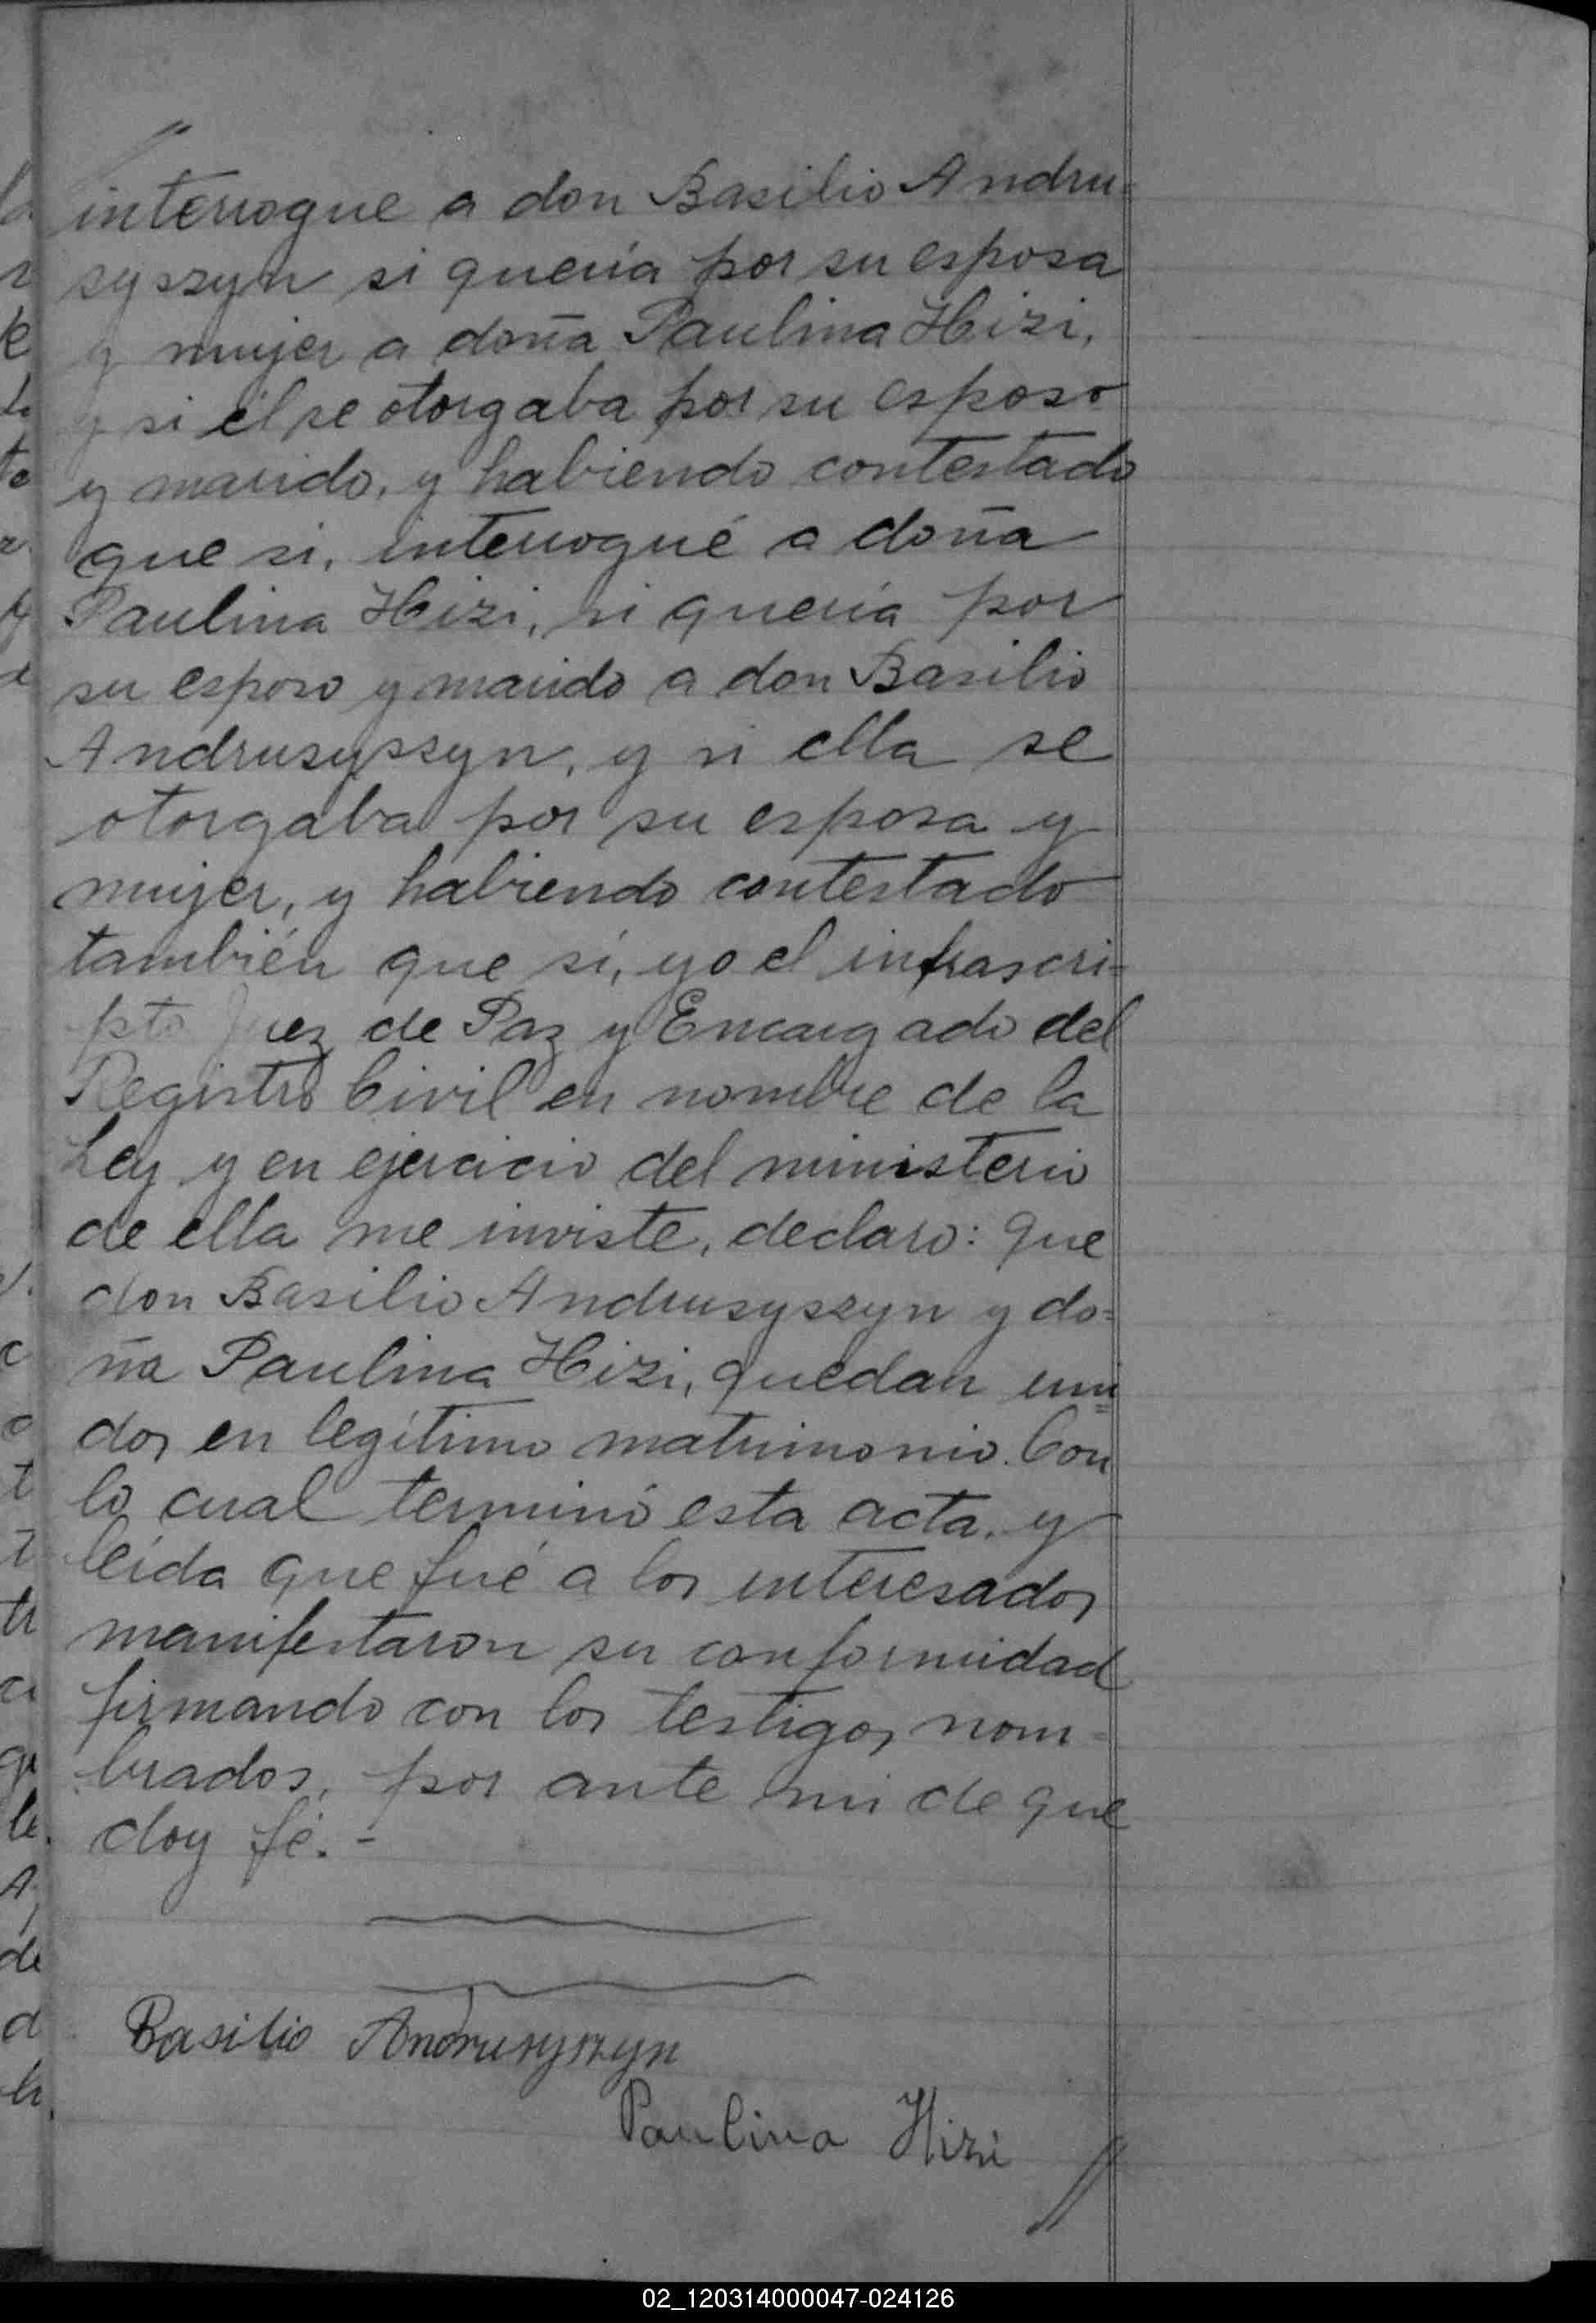 interrogue a don Basilio Andru-
syszyn si quería por su esposa
y mujer a doña Paulina Hizi,
y si él se otorgaba por su esposo
y marido, y habiendo contestado
que si, interrogué a doña
Paulina Hizi, si quería por
su esposo y marido a don Basilio
Andrusyszyn, y si ella se
otorgaba por su esposa y
mujer, y habiendo contestado
también que sí, yo el infrascri-
pto Juez de Paz y Encargado del
Registro Civil en nombre de la
Ley y en ejercicio del ministerio
de ella me inviste, declaro: que
don Basilio Andrusyszyn y do=
ña Paulina Hizi, quedan uni
dos en legítimo matrimonio. Con
lo cual terminó esta acta, y
leída que fué a los interesados
manifestaron su conformidad
firmando con los testigos nom-
brados, por ante mi de que
doy fé. -
Basilio Andrusyszyn
Paulina Hizi //
02_120314000047-024126